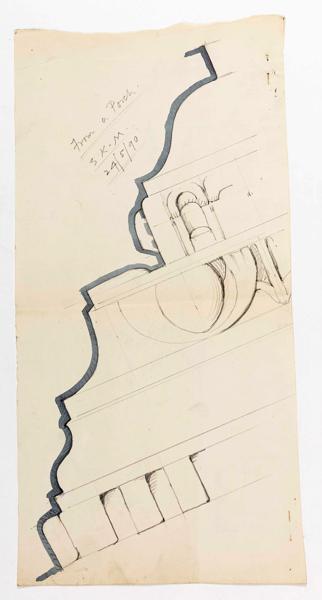 From a Porch.
S.K.M.
24/5/90